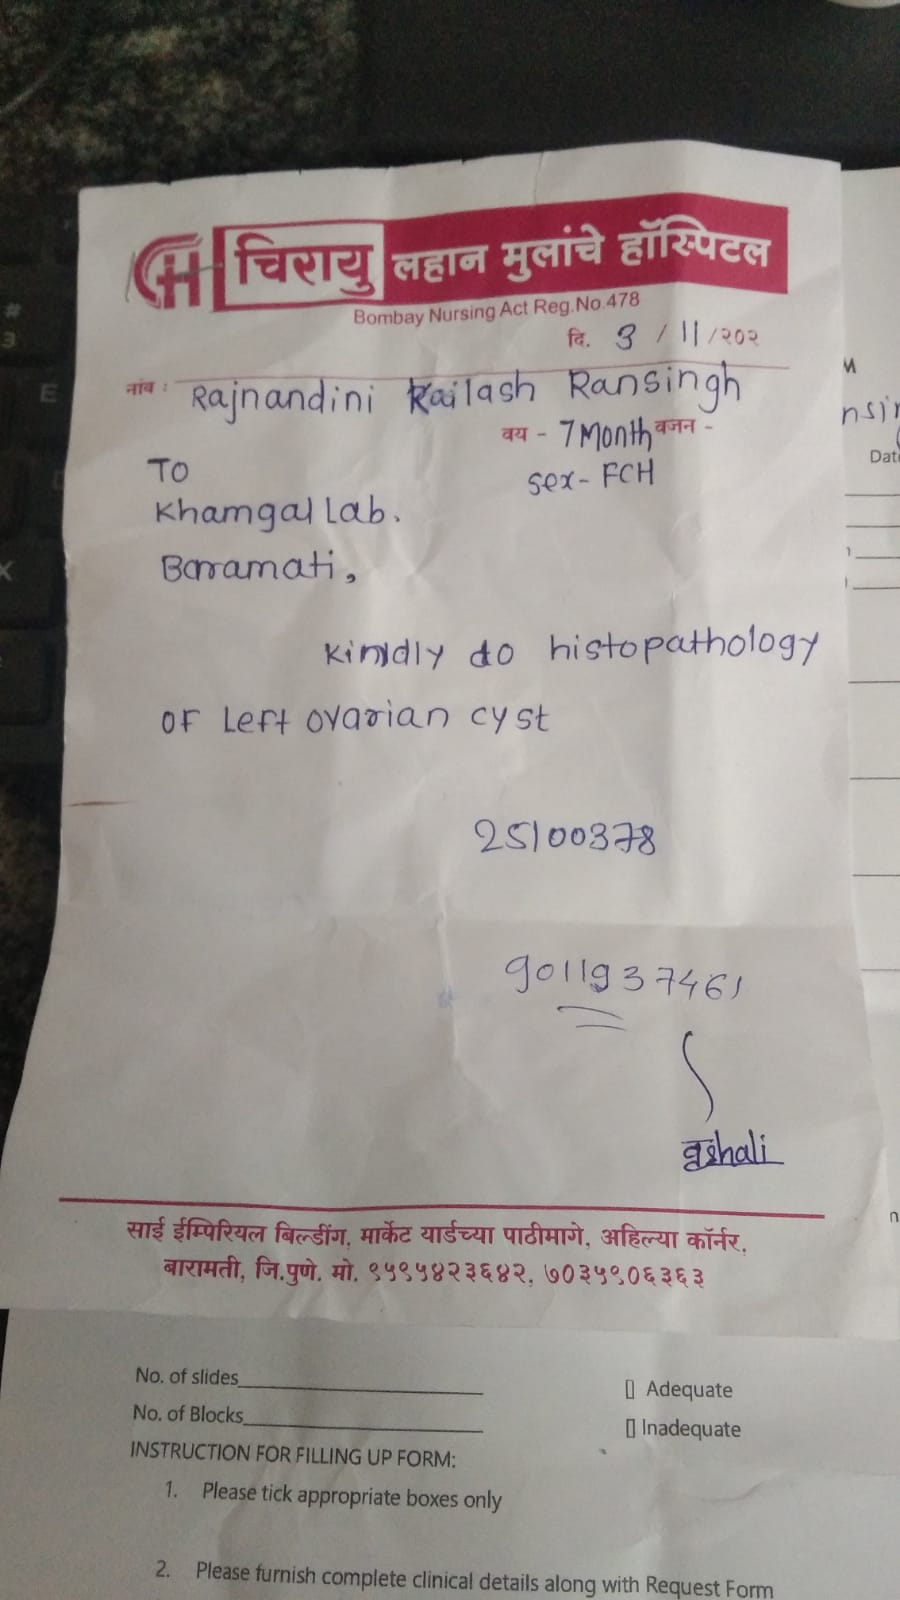 CH चिरायु लहान मुलांचे हॉस्पिटल
Bombay Nursing Act Reg.No.478
दि. 3 / 11 /२०२
नांव : Rajnandini Kailash Ransingh
वय - 7 Month वजन -
Sex - FCH
TO
Khamgal Lab.
Baramati,
Kindly do histopathology
OF Left ovarian cyst
25100378
9011937461
साई ईम्पिरियल बिल्डींग, मार्केट यार्डच्या पाठीमागे, अहिल्या कॉर्नर,
बारामती, जि.पुणे. मो. ९५९५४२३६४२, ७०३५९०६३६३
No. of slides
No. of Blocks
Adequate
Inadequate
INSTRUCTION FOR FILLING UP FORM:
1. Please tick appropriate boxes only
2. Please furnish complete clinical details along with Request Form